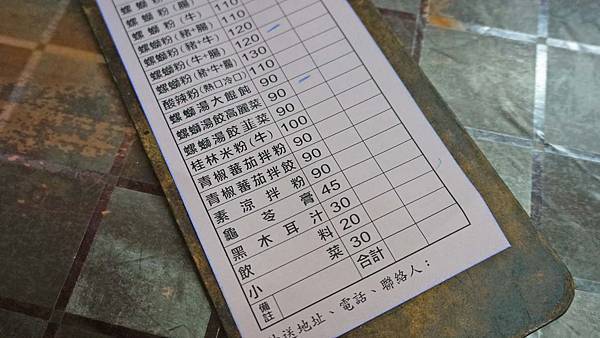 螺螄粉(腸) 110
螺螄粉(牛) 110
螺螄粉(豬+腸) 120
螺螄粉(豬+牛) 120
螺螄粉(牛+腸) 120
螺螄粉(豬+牛+腸) 130
酸辣粉(熱口冷口) 110
螺螄湯大餛飩 90
螺螄湯餃高麗菜 90
螺螄湯餃韭菜 90
桂林米粉(牛) 100
青椒蕃茄拌粉 90
青椒蕃茄拌餃 90
素涼拌粉 90
龜苓膏 45
黑木耳汁 30
飲料 20
小菜 30
備註 合計
送地址、電話、聯絡人：